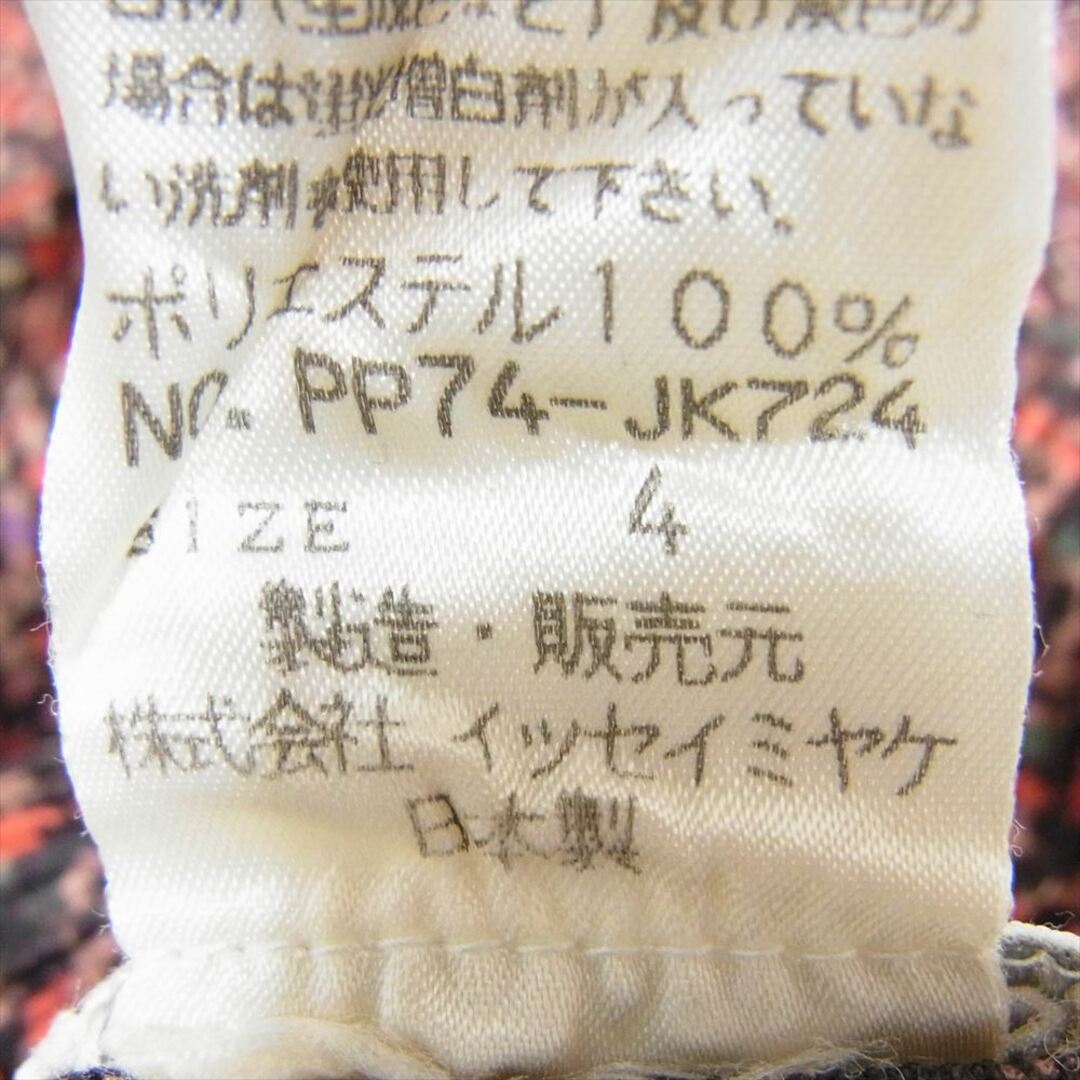 場合は蛍光増白剤が入っていな
い洗剤を使用して下さい。
ポリエステル100%
NO. PP74-JK724
SIZE 4
製造・販売元
株式会社 イッセイミヤケ
日本製